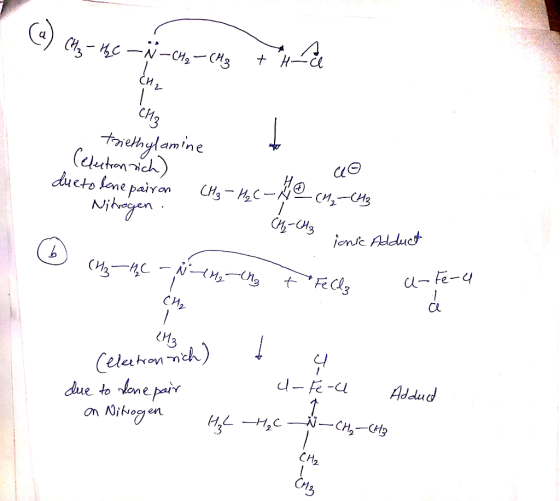 (a) CH3 - H2C - N̈ - CH2 - CH3 + H - Cl
CH2
CH3
triethylamine
(electron rich)
due to lone pair on
Nitrogen.
H Cl⊖
CH3 - H2C - N⊕ - CH2 - CH3
CH2-CH3
ionic Adduct
(b) CH3 - H2C - N̈ - CH2 - CH3 + FeCl3 Cl - Fe - Cl
CH2 Cl
CH3
(electron rich)
due to lone pair
on Nitrogen
Cl
Cl - Fe - Cl Adduct
H3C - H2C - N - CH2 - CH3
CH2
CH3